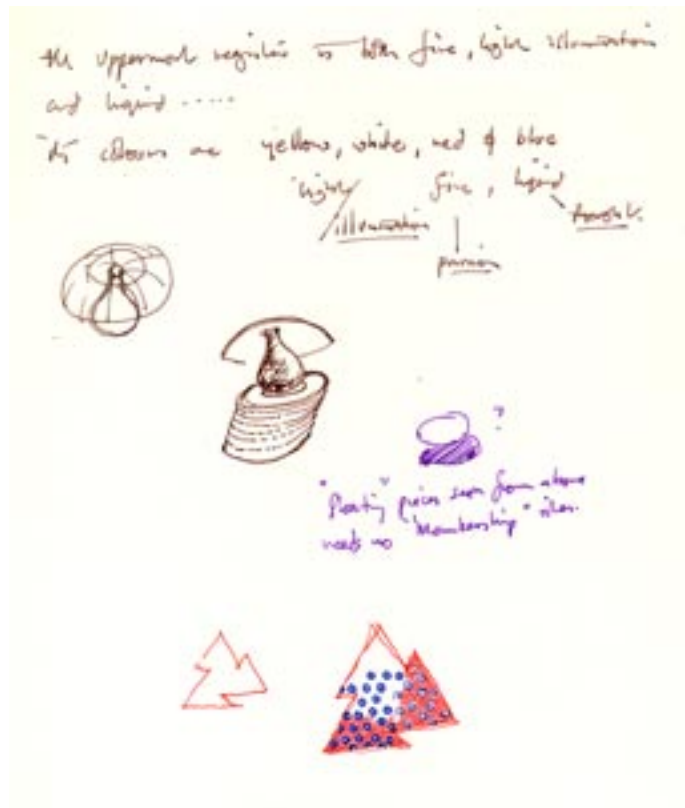 the uppermost register is both fire, light illumination
and liquid .....
its colours are yellow, white, red & blue
light fire, liquid
illumination
passion
"Floating" pieces seen from above ?
needs no "Membership"